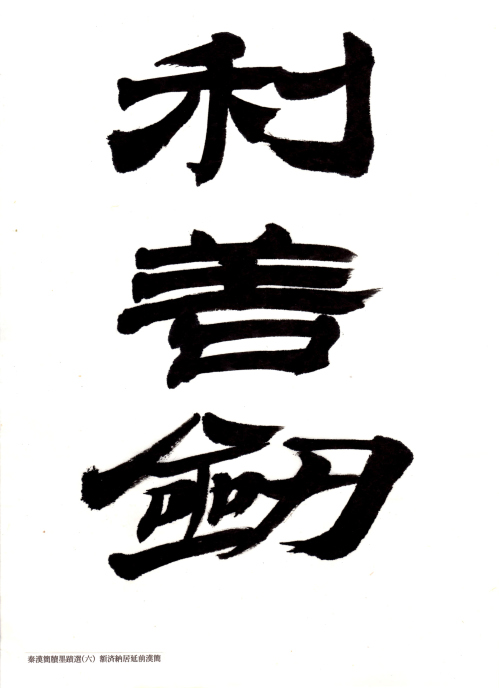 利
善
劒
秦漢簡牘墨蹟選(六) 額済納居延前漢簡